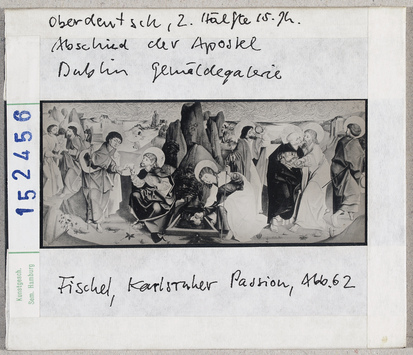 Oberdeutsch, 2. Hälfte 15. Jh.
Abschied der Apostel
Dublin Gemäldegalerie
152456
Kunstgesch.
Sem. Hamburg
Fischel, Karlsruher Passion, Abb. 62